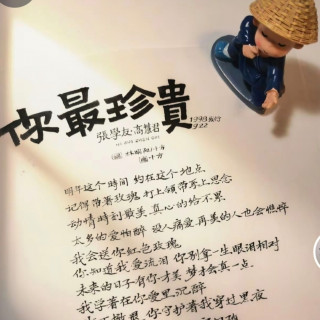 你最珍貴
張學友·高慧君
1998發行
3.22
明年这个时间 约在这个地点
记得带著玫瑰 打上领带系上思念
动情时刻最美 真心的给不累
太多的爱怕醉 没人疼爱再美的人也会憔悴
我会送你红色玫瑰
你知道我爱流泪 你别拿一生眼泪相对
未来的日子有你才美 梦才会真一点
我学著在你爱里沉醉
你守护著我穿过黑夜